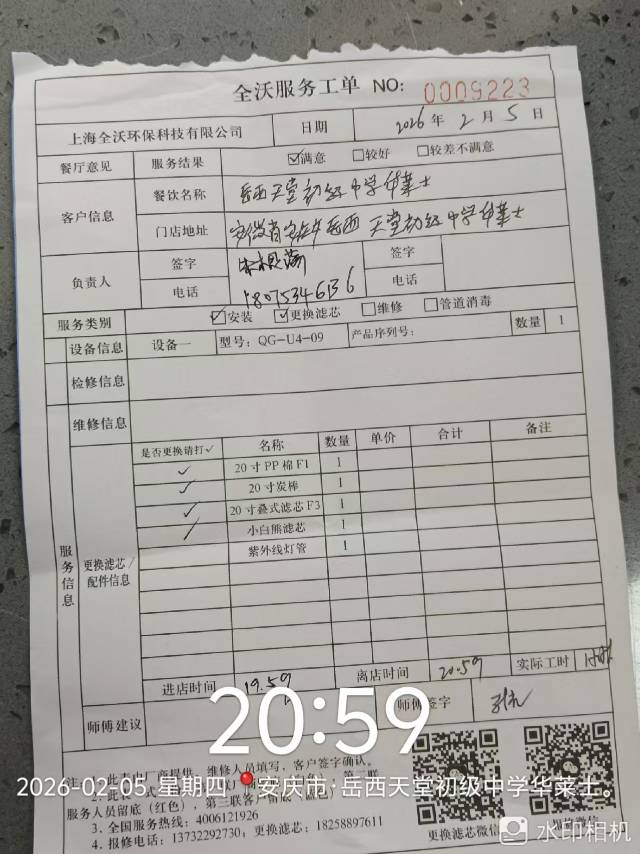 全沃服务工单 NO: 0009223
上海全沃环保科技有限公司 日期 2026 年 2 月 5 日
餐厅意见 服务结果 ☑满意 □较好 □较差不满意
客户信息 餐饮名称 岳西天堂初级中学华莱士
门店地址 安徽省安庆市岳西天堂初级中学华莱士
负责人 签字 签字
电话 18075346136 电话
服务类别 ☑安装 ☑更换滤芯 □维修 □管道消毒
设备信息 设备一 型号: QG-U4-09 产品序列号: 数量 1
检修信息
维修信息
服务信息
更换滤芯/配件信息
是否更换请打✓ 名称 数量 单价 合计 备注
✓ 20寸PP棉F1 1
✓ 20寸炭棒 1
✓ 20寸叠式滤芯F3 1
✓ 小白熊滤芯 1
紫外线灯管 1
进店时间 19.59 离店时间 20:59 实际工时
师傅建议 师傅签字
20:59
厂商提供, 维修人员填写, 客户签字确认。
2026-02-05 星期四 安庆市·岳西天堂初级中学华莱士。
服务人员留底(红色), 第三联客户留底
3. 全国服务热线: 4006121926
4. 报修电话: 13732292730; 更换滤芯: 18258897611
更换滤芯微信
水印相机